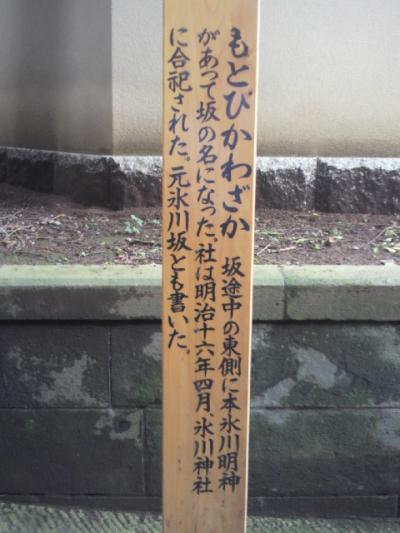 もとひかわざか　坂途中の東側に本氷川明神
があって坂の名になった。社は明治十六年四月、氷川神社
に合祀された。元氷川坂とも書いた。